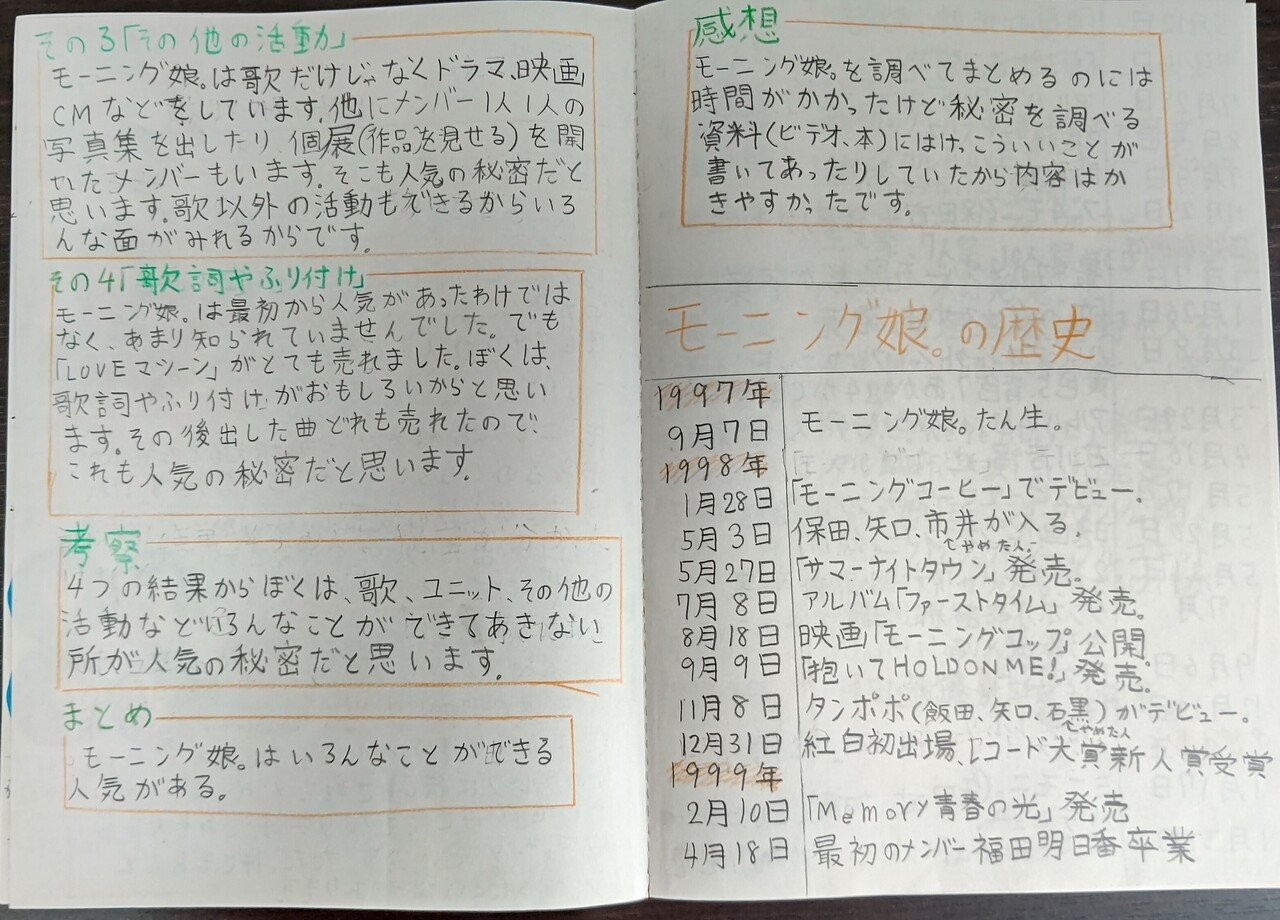 その3「その他の活動」
モーニング娘。は歌だけじゃなくドラマ、映画
CMなどをしています。他にメンバー1人1人の
写真集を出したり、個展(作品を見せる)を開
いたメンバーもいます。そこも人気の秘密だと
思います。歌以外の活動もできるからいろ
んな面がみれるからです。
その4「歌詞やふり付け」
モーニング娘。は最初から人気があったわけでは
なく、あまり知られていませんでした。でも
「LOVEマシーン」がとても売れました。ぼくは、
歌詞やふり付けがおもしろいからと思い
ます。その後出した曲どれも売れたので、
これも人気の秘密だと思います。
考察
4つの結果からぼくは、歌、ユニット、その他の
活動などいろんなことができてあきない
所が人気の秘密だと思います。
まとめ
モーニング娘。はいろんなことができる
人気がある。
感想
モーニング娘。を調べてまとめるのには
時間がかかったけど秘密を調べる
資料(ビデオ、本)にはけっこういいことが
書いてあったりしていたから内容はか
きやすかったです。
モーニング娘。の歴史
1997年
9月7日 モーニング娘。たん生。
1998年
1月28日 「モーニングコーヒー」でデビュー。
5月3日 保田、矢口、市井が入る。
やめた人
5月27日 「サマーナイトタウン」発売。
7月8日 アルバム「ファーストタイム」発売。
8月18日 映画「モーニングコップ」公開。
9月9日 「抱いてHOLDONME!」発売。
11月8日 タンポポ(飯田、矢口、石黒)がデビュー。
やめた人
12月31日 紅白初出場、レコード大賞新人賞受賞
1999年
2月10日 「Memory青春の光」発売
4月18日 最初のメンバー福田明日香卒業